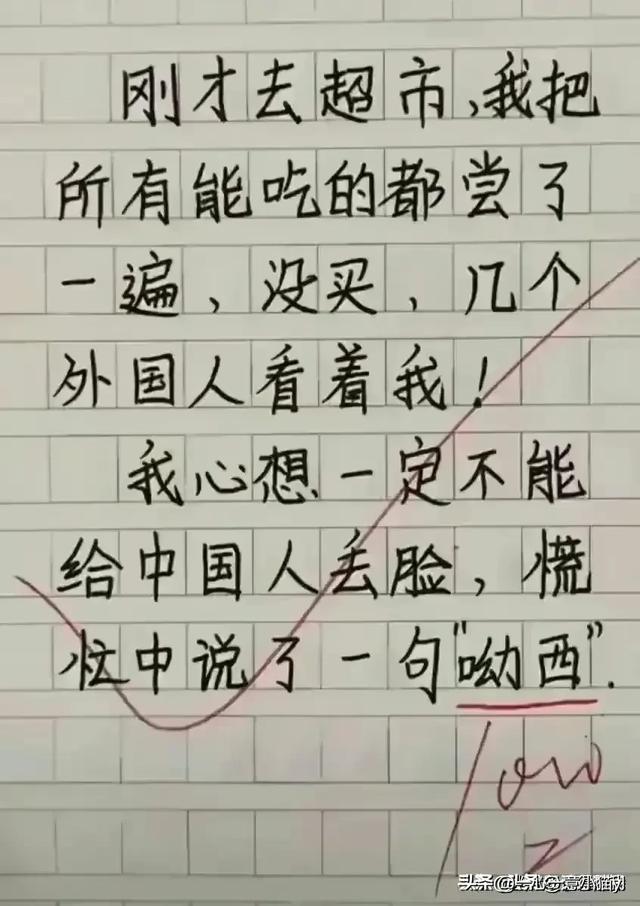 刚才去超市,我把
所有能吃的都尝了
一遍，没买，几个
外国人看着我！
我心想一定不能
给中国人丢脸，慌
忙中说了一句"呦西".
头条